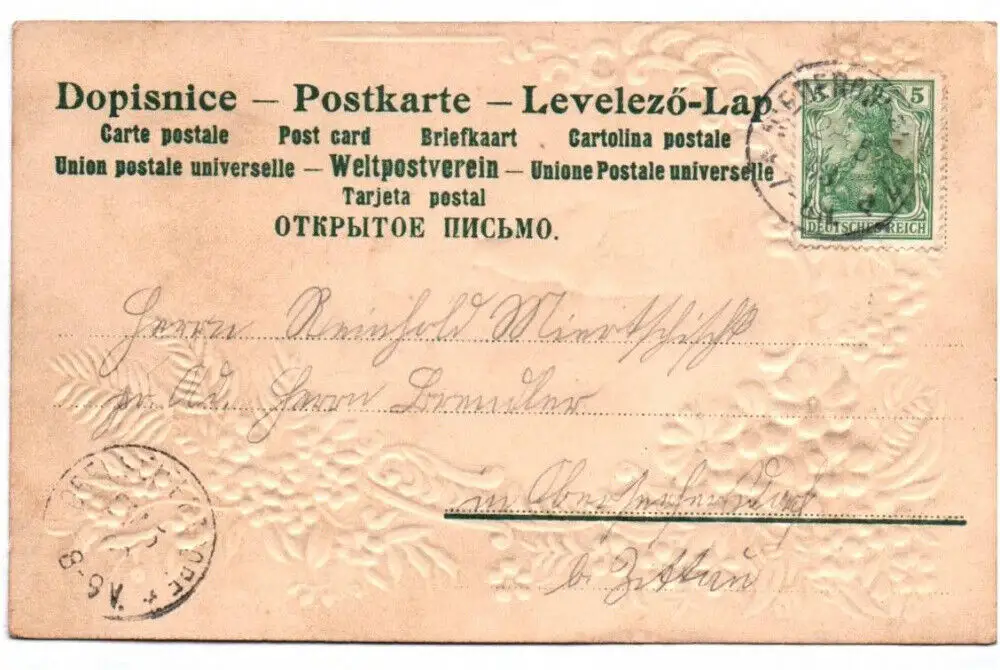 Dopisnice – Postkarte – Levelező-Lap
Carte postale Post card Briefkaart Cartolina postale
Union postale universelle – Weltpostverein – Unione Postale universelle
Tarjeta postal
ОТКРЫТОЕ ПИСЬМО.
5
DEUTSCHES REICH
Herrn Reinhold
pr. Ad. Herrn Brendler
in Oberseifersdorf
b. Zittau
A 6-8